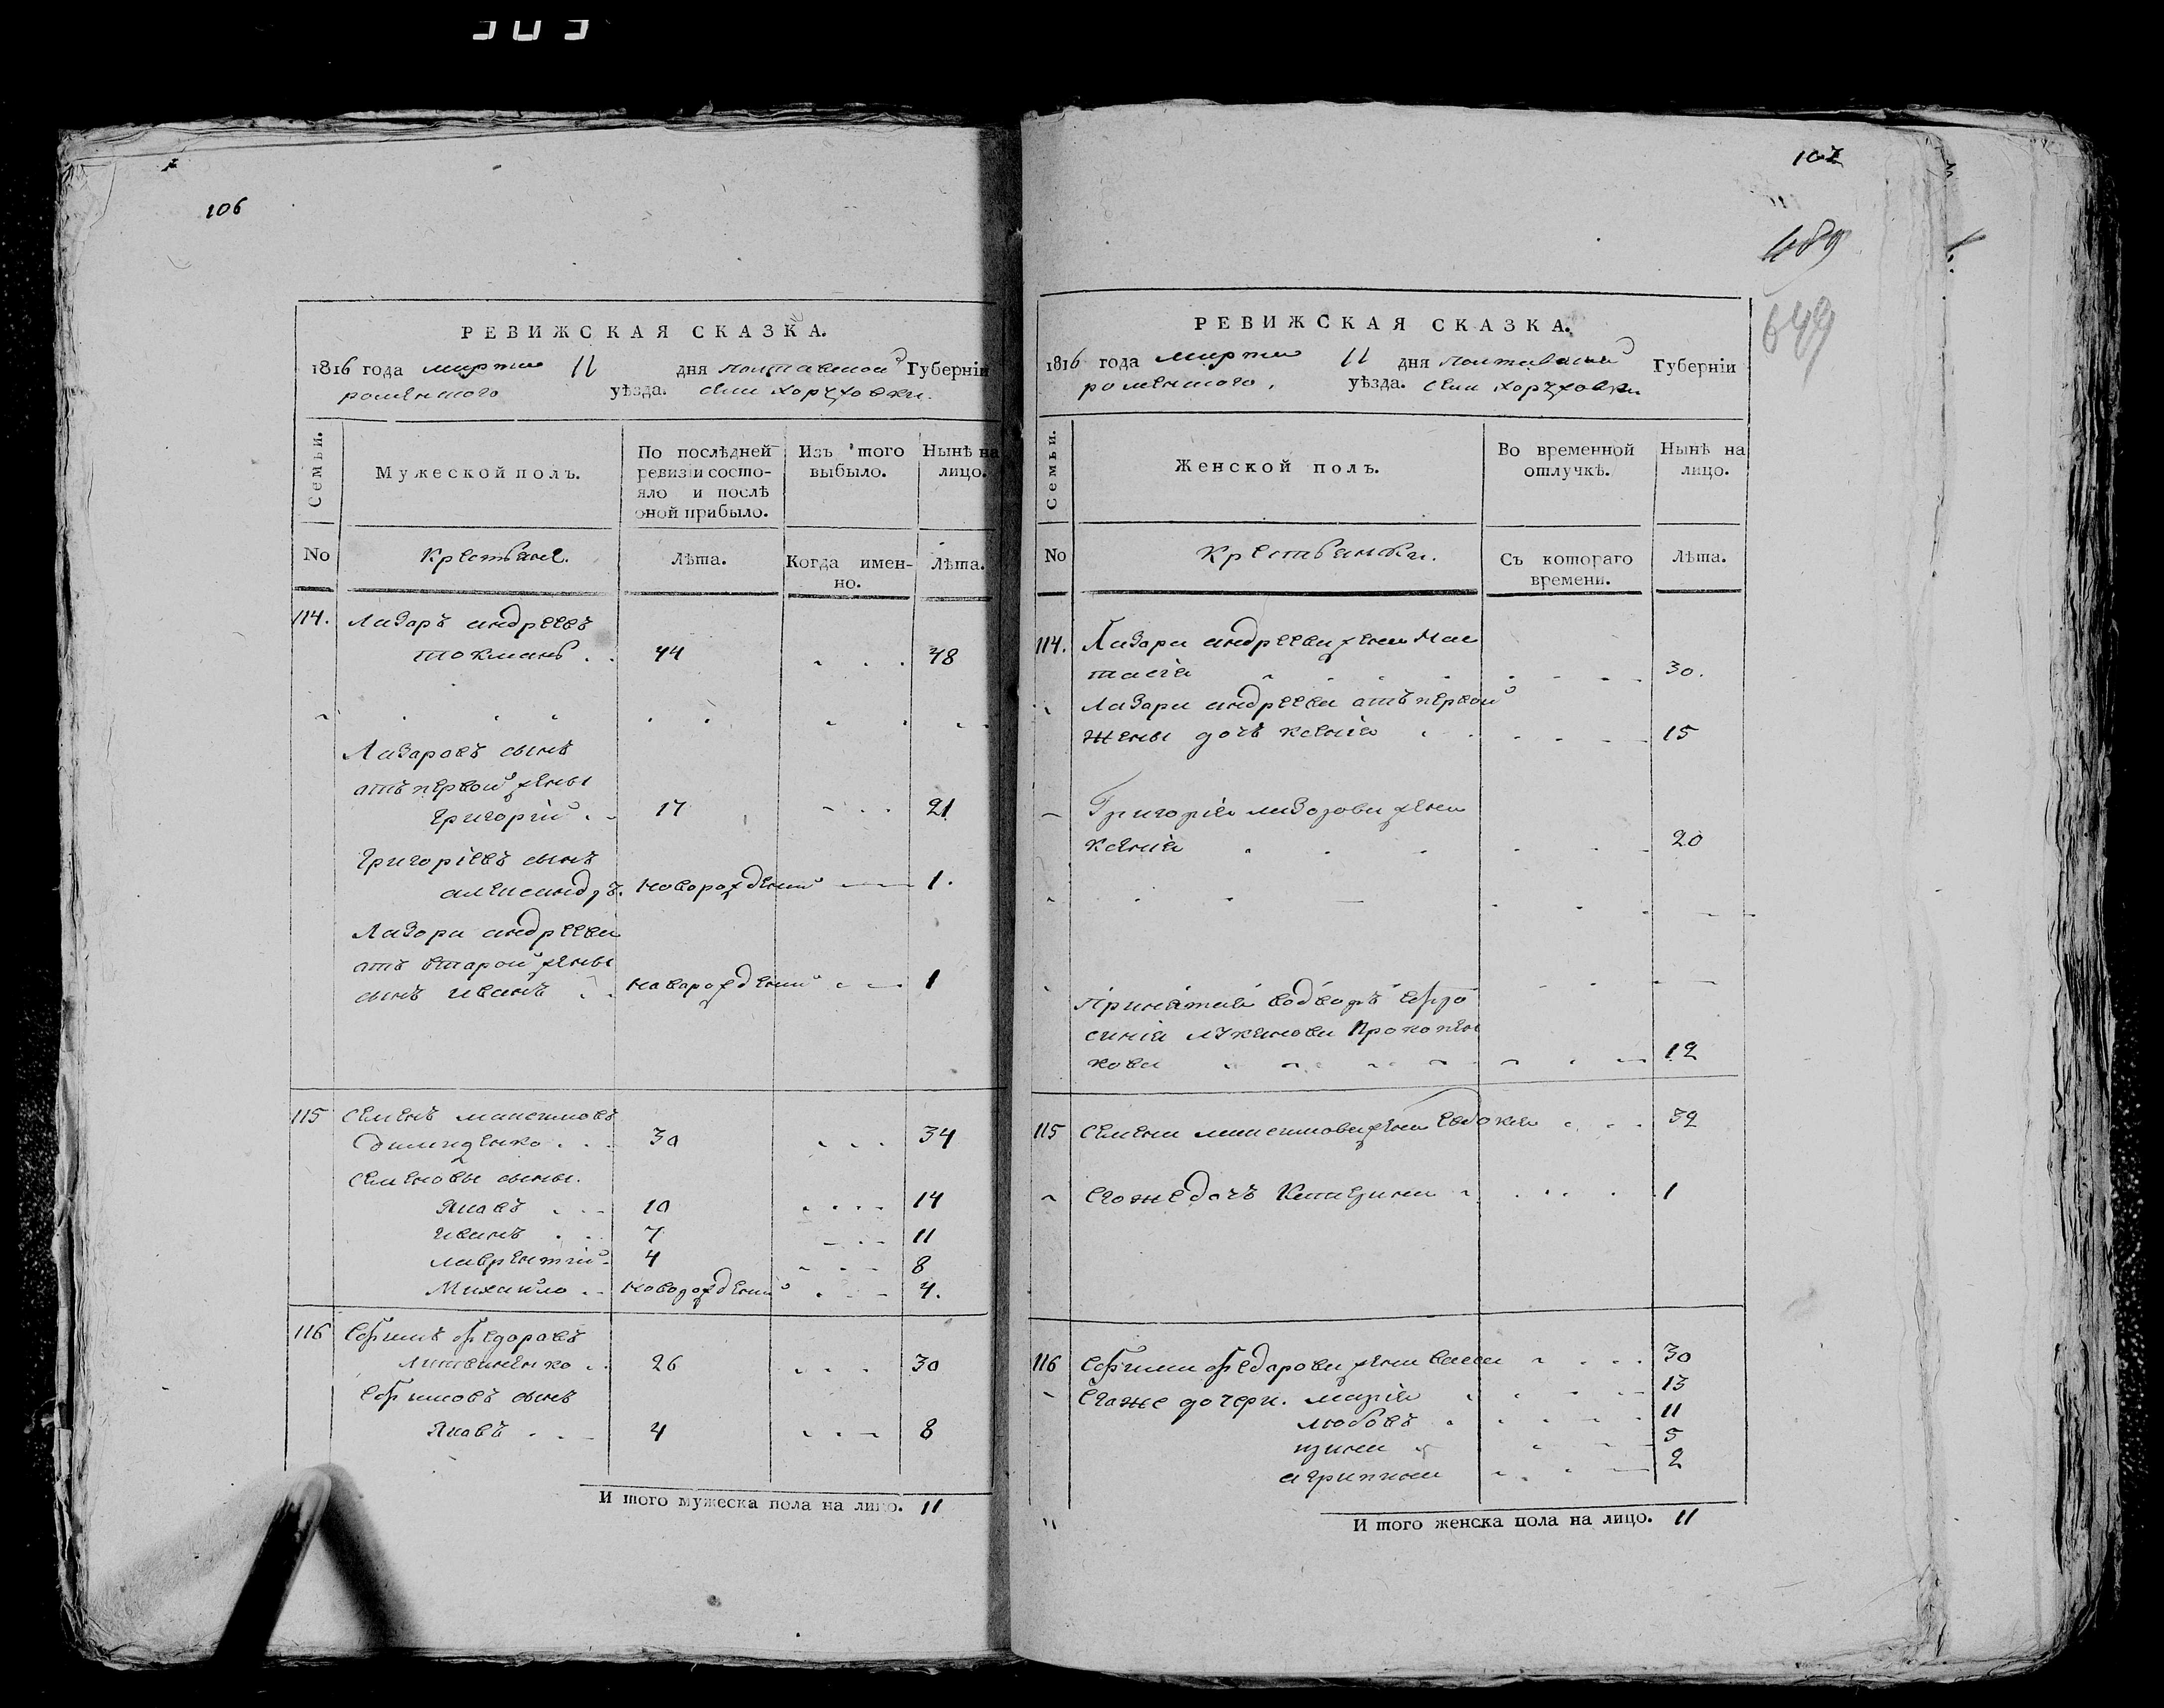 106
РЕВИЖСКАЯ СКАЗКА.
1816 года марта 11 дня полтавской Губерніи
роменского уѣзда. села хоружовки.
Семьи.
Мужеской полъ.
По послѣдней
ревизіи состо-
яло и послѣ
оной прибыло.
Изъ того
выбыло.
Нынѣ на
лицо.
No
Крестьяне.
Лѣта.
Когда имен-
но.
Лѣта.
114. Лазаръ андреевъ
токмань 44 48
Лазаровъ сынъ
отъ первой жены
григорій 17 21
григоріевъ сынъ
александръ. новорождений 1.
Лазора андреева
отъ второй жены
сынъ иванъ новорождений 1
115 Семенъ максимовъ
30 34
Семеновы сыны.
Яковъ 10 14
иванъ 7 11
лаврентій 4 8
Михайло новорождений 4.
116 Ефимъ федоровъ
литвиненко 26 30
Ефимовъ сынъ
Яковъ 4 8
И того мужеска пола на лицо. 11
107
489
649
РЕВИЖСКАЯ СКАЗКА.
1816 года марта 11 дня полтавской Губерніи
роменского. уѣзда. села хоружовки
Семьи.
Женской полъ.
Во временной
отлучкѣ.
Нынѣ на
лицо.
No
Крестьянки.
Съ котораго
времени.
Лѣта.
114. Лазара андреева жена Нас
тасія 30.
Лазара андреева отъ первой
жены дочь ксенія 15
Григорія лазорова жена
ксенія 20
Принятая водворъ ефро
синія лукянова Прокопен
кова 12
115 Семена максимова жена Евдокия 32
Егоже дочъ Катерина 1
116 Ефима федорова жена васса 30
Егоже дочери. марія 13
любовъ 11
ирина 5
агрипина 2
И того женска пола на лицо. 11